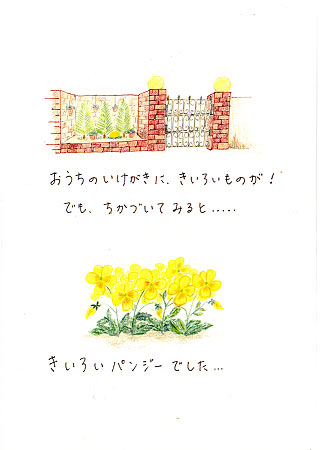 おうちのいけがきに、きいろいものが!
でも、ちかづいてみると.....
きいろいパンジーでした...